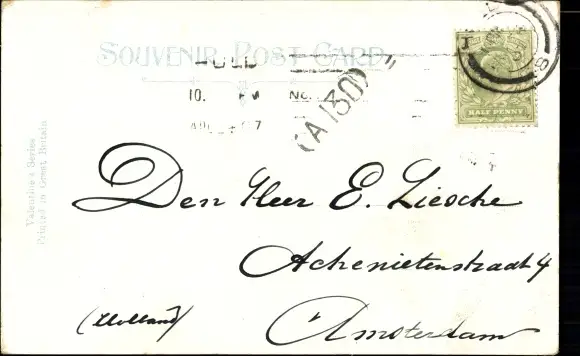 SOUVENIR POST CARD
HULL
10. PM
A130
HALF PENNY
Valentine's Series
Printed in Great Britain
Den Heer E. Liesche
Achenietenstraat 4
Amsterdam
(Holland)